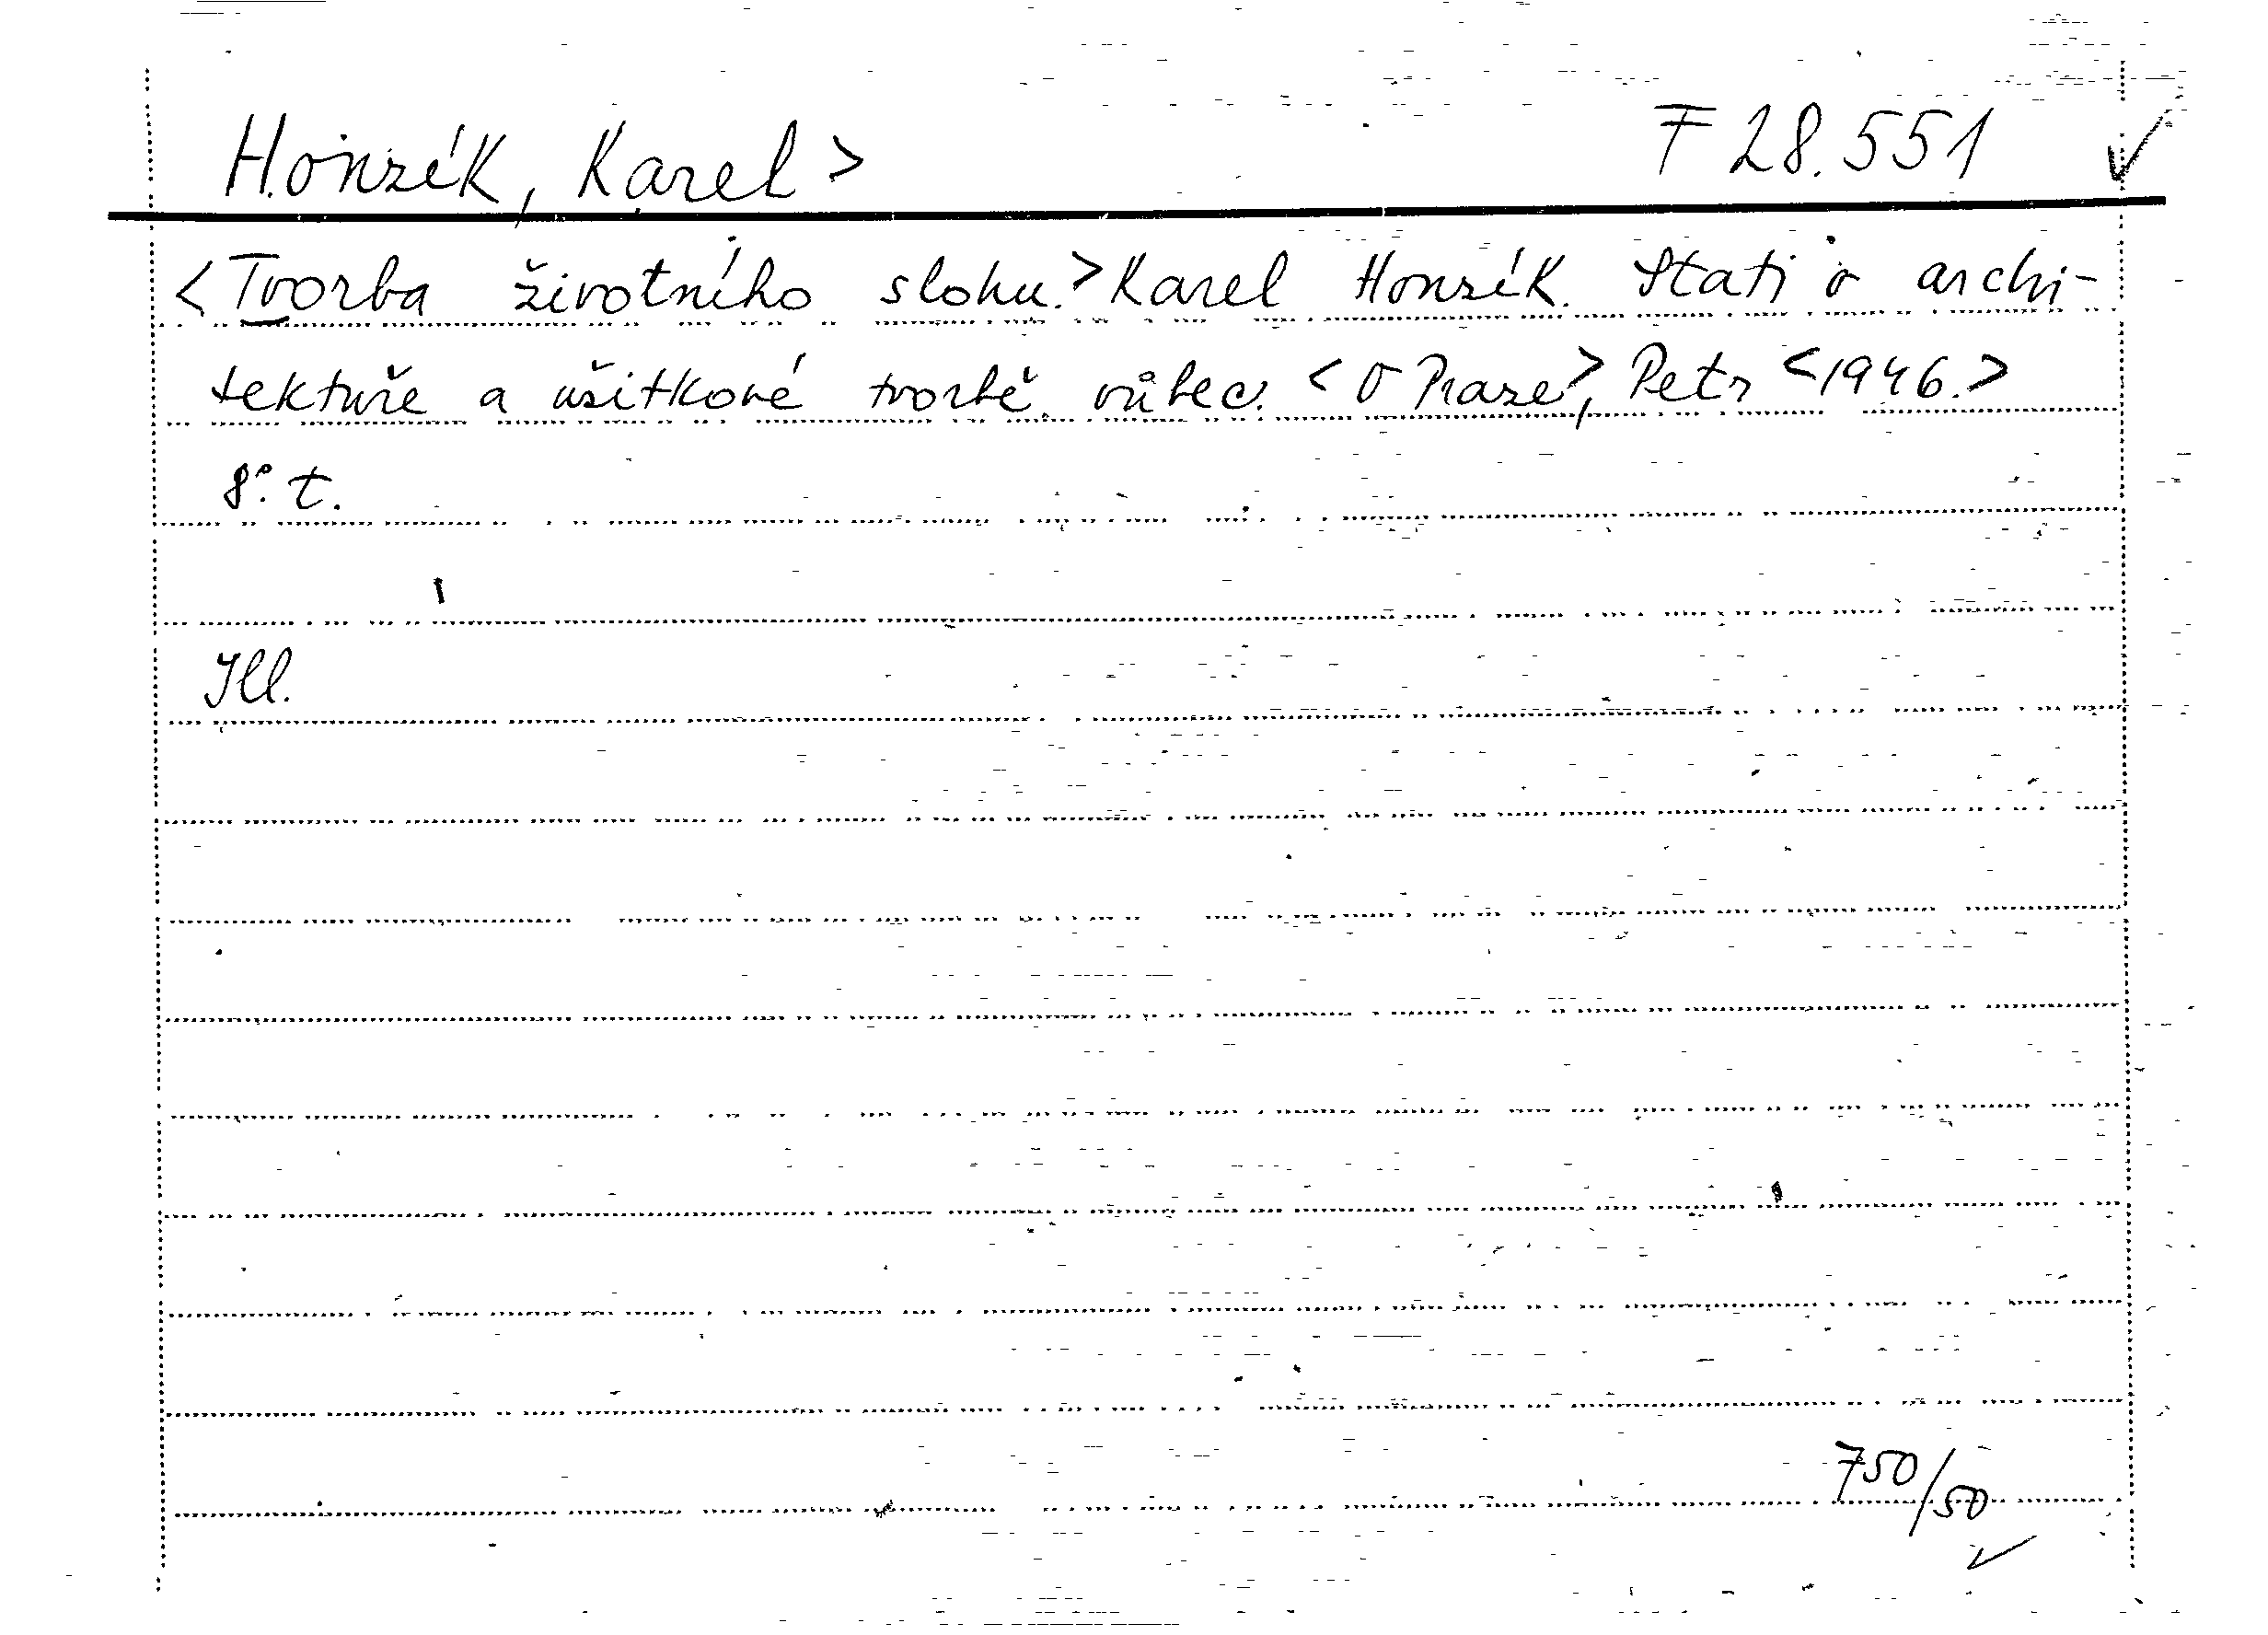 Honzík, Karel > F 28.551 ✓
<Tvorba životního slohu.> Karel Honzík. Stati o archi-
tektuře a užitkové tvorbě vůbec. <V Praze>, Petr <1946.>
8°. t.
Ill.
750/50 ✓